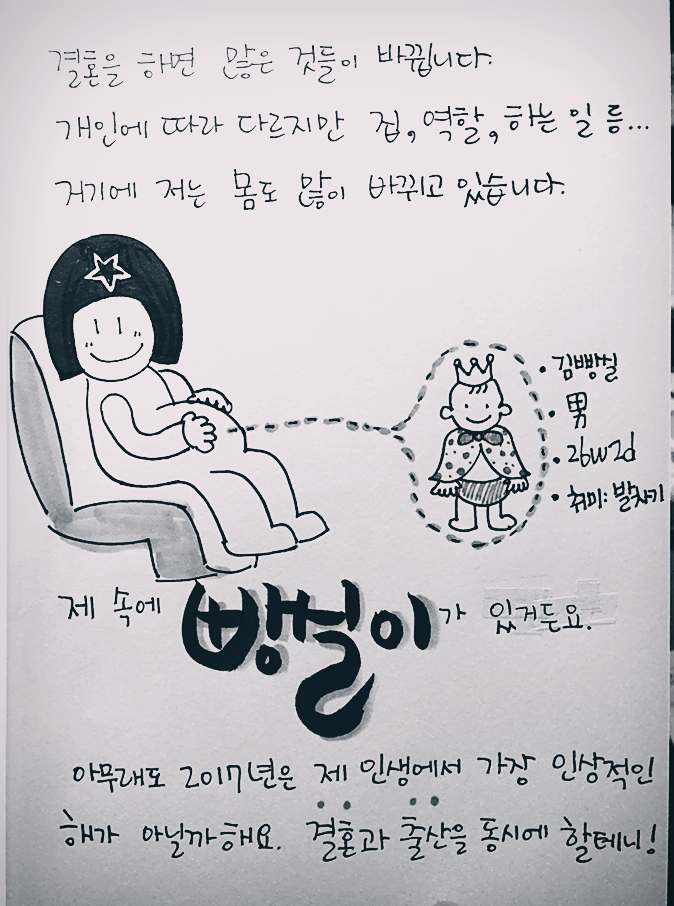 결혼을 하면 많은 것들이 바뀝니다.
개인에 따라 다르지만 집, 역할, 하는 일 등...
거기에 저는 몸도 많이 바뀌고 있습니다.
• 김뺑실
• 男
• 26w2d
• 취미: 발차기
제 속에 뺑실이가 있거든요.
아무래도 2017년은 제 인생에서 가장 인상적인
해가 아닐까해요. 결혼과 출산을 동시에 할테니!